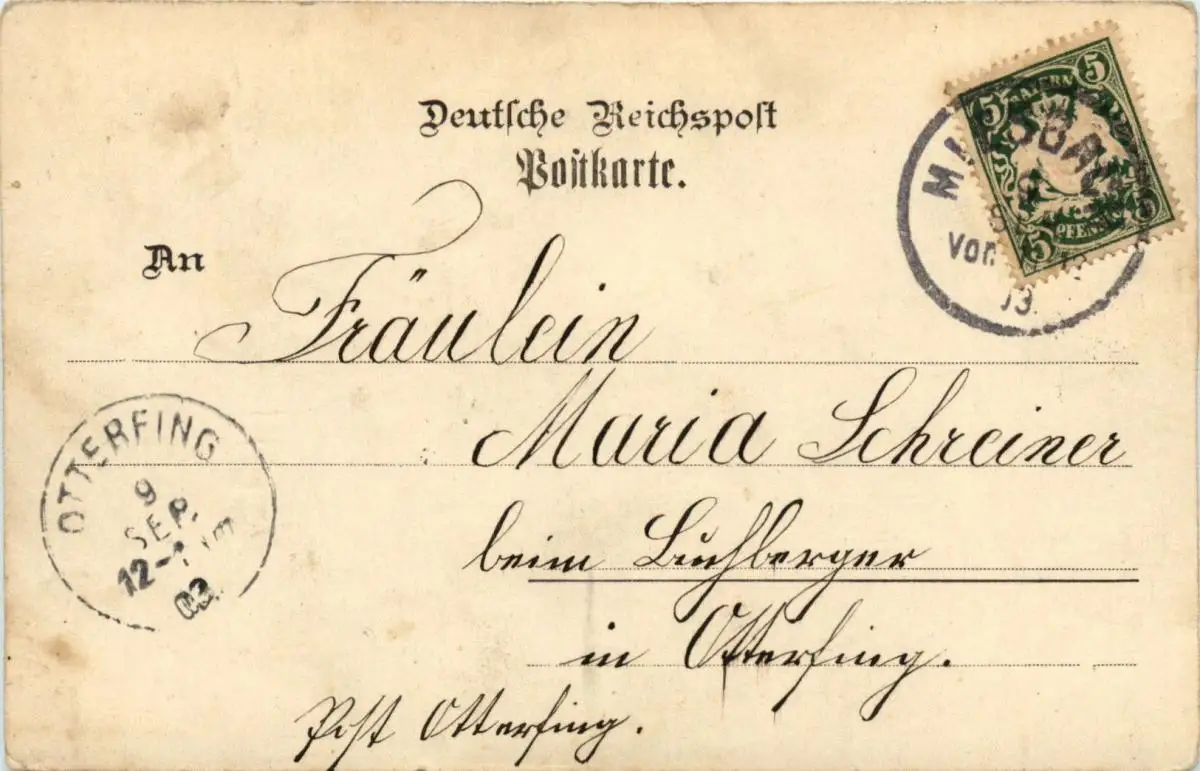 Deutsche Reichspost
Postkarte.
5 BAYERN 5
5 PFENNIG 5
Vor
03
An
Fräulein
Maria Schreiner
beim Buchberger
in Otterfing.
Post Otterfing.
OTTERFING
9
SEP.
12-1
03